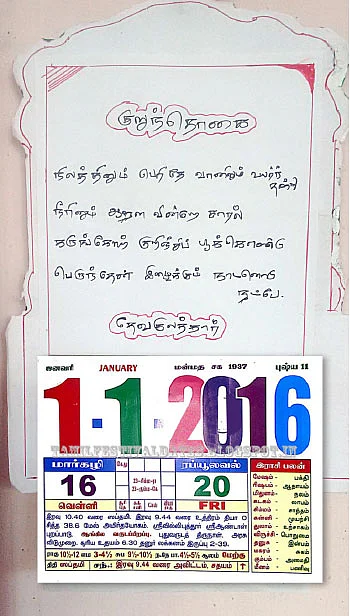 குறுந்தொகை
நிலத்தினும் பெரிதே வானினும் உயர்ந்
தன்று
நீரினும் ஆரள வின்றே சாரல்
கருங்கோற் குறிஞ்சிப் பூக்கொண்டு
பெருந்தேன் இழைக்கும் நாடனொடு
நட்பே.
தேவகுலத்தார்
ஜனவரி JANUARY மன்மத சக 1937 புஷ்ய 11
1-1-2016
TAMILFESTIVALDATES.BLOGSPOT.IN
மார்கழி ரப்யூலவல் இராசி பலன்
16 20
வெள்ளி FRI
மேஷம் - பக்தி
ரிஷபம் - ஆதாயம்
மிதுனம் - நலம்
கடகம் - லாபம்
சிம்மம் - சாந்தம்
கன்னி - முயற்சி
துலாம் - உற்சாகம்
விருச்சி - பொறுமை
தனுசு - இன்பம்
மகரம் - சுகம்
கும்பம் - அமைதி
மீனம் - பணிவு
இரவு 10.40 வரை ஸப்தமி. இரவு 9.44 வரை உத்திரம் தியா 0
சித்த 38.6 மேல் அமிர்தயோகம். ஸ்ரீவில்லிபுத்தூர் ஸ்ரீஆண்டாள்
புறப்பாடு. ஆங்கில வருடப்பிறப்பு. புதுவருடத் திருநாள். அரசு
விடுமுறை. சூரிய உதயம் 6.30 தனுர் லக்கனம் இருப்பு 2-39.
திதி ஸப்தமி சந்.: இரவு 9.44 வரை அவிட்டம், சதயம்